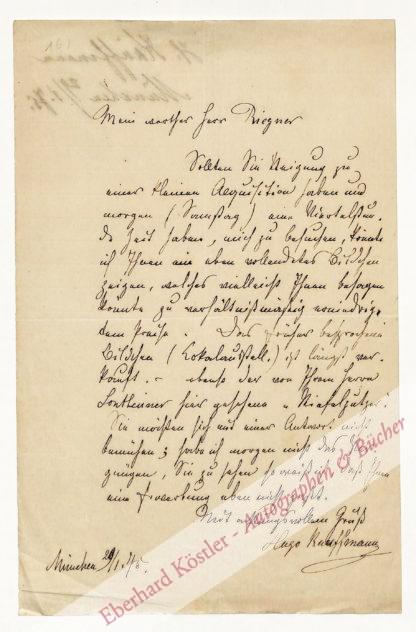 Mein werther Herr Diegner
Sollten Sie Neigung zu
einer kleinen Acquisition haben und
morgen (Samstag) eine Viertelstun-
de Zeit haben, mich zu besuchen, könnte
ich Ihnen ein eben vollendetes Bildchen
zeigen, welches vielleicht Ihnen behagen
könnte zu verhältnißmäßig niedrig
dem Preise. Das früher besprochene
Bildchen (Lokalausstell.) ist längst ver-
kauft. – ebenso der von Ihrem Herrn
hier gesehene
Sie möchten sich mit einer Antwort nicht
bemühen; habe ich morgen nicht das Ver-
gnügen, Sie zu sehen so weiß ich daß Ihnen
eine Erwerbung eben nicht
Mit achtungsvollem Gruß
Hugo Kauffmann
München 29/1. 75.
H. Kauffmann
München 29/1. 75.
Eberhard Köstler - Autographen & Bücher